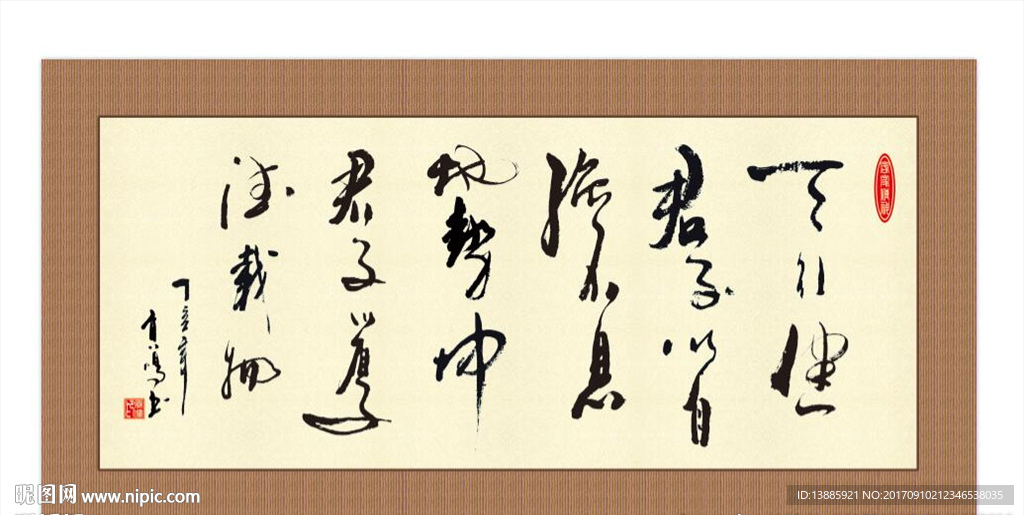 天行健
君子以自
強不息
地勢坤
君子以厚
德載物
丁亥年
书
昵图网 www.nipic.com
ID:13885921 NO:20170910212346538035